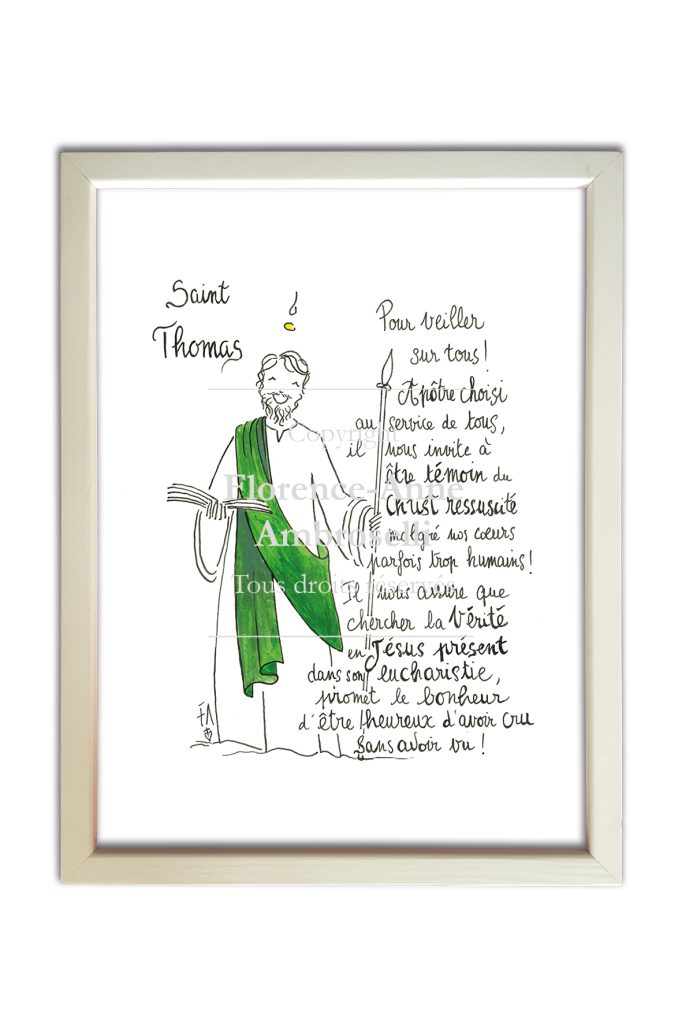 Saint
Thomas
Pour veiller
sur tous !
Apôtre choisi
au service de tous,
il nous invite à
être témoin du
Christ ressuscité
malgré nos cœurs
parfois trop humains !
Il nous assure que
chercher la Vérité
en Jésus présent
dans son eucharistie,
promet le bonheur
d'être heureux d'avoir cru
sans avoir vu !
FA
Copyright
Florence-Anne
Ambroselli
Tous droits réservés